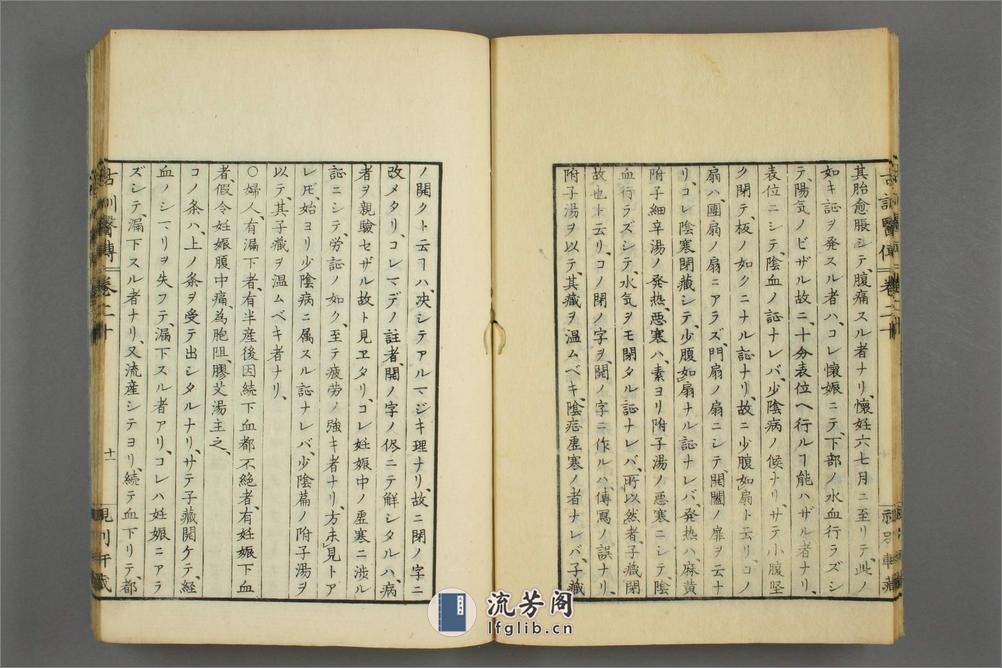 其胎愈脹シテ、腹痛スル者ナリ、懷妊六七月ニ至リテ、此ノ
如キ証ヲ発スル者ハ、コレ懷娠ニテ、下部ノ水血行ラズシ
テ陽気ノビザル故ニ、十分表位ヘ行ルヿ能ハザル者ナリ、
表位ニシテ、陰血ノ証ナレバ、少陰病ノ候ナリ、サテ小腹堅
ク閉テ、板ノ如クニナル証ナリ、故ニ少腹如扇ト云リ、コノ
扇ハ、團扇ノ扇ニアラズ、門扇ノ扇ニシテ、開闔ノ扉ヲ云ナ
リ、コレ陰寒閉藏シテ、少腹如扇ナル証ナレバ、発熱ハ麻黄
附子細辛湯ノ発熱、悪寒ハ、素ヨリ附子湯ノ悪寒ニシテ、陰
血行ラズシテ、水気ヲモ閉タル証ナレバ、所以然者、子藏閉
故也ト云リ、コノ閉ノ字ヲ、開ノ字ニ作ルハ、傳寫ノ誤ナリ、
附子湯ヲ以テ其藏ヲ温ムベキ、陰症虚寒ノ者ナレバ、子藏
古訓醫傳 卷二十
ノ開クト云ヿハ、决シテアルマジキ理ナリ、故ニ閉ノ字ニ
改メタリ、コレマデノ註者開ノ字ノ侭ニテ解シタルハ、病
者ヲ親驗セザル故ト見ヱタリ、コレ妊娠中ノ虚寒ニ渉ル
証ニシテ、労証ノ如ク、至テ疲労ノ強キ者ナリ、方未見トア
レ𪜈、始ヨリ少陰病ニ属スル証ナレバ、少陰篇ノ附子湯ヲ
以テ、其子藏ヲ温ムベキ者ナリ、
○婦人、有漏下者、有半産後因続下血都不絶者、有妊娠下血
者、假令妊娠腹中痛、為胞阻、膠艾湯主之、
コノ条ハ、上ノ条ヲ受テ出シタルナリ、サテ子藏開ケテ、経
血ノシマリヲ失フテ、漏下スル者アリ、コレハ妊娠ニアラ
ズシテ、漏下スル者ナリ、又流産シテヨリ、続テ血下リテ、都
古訓醫傳 卷二十
十一
流芳阁
lfglib.cn